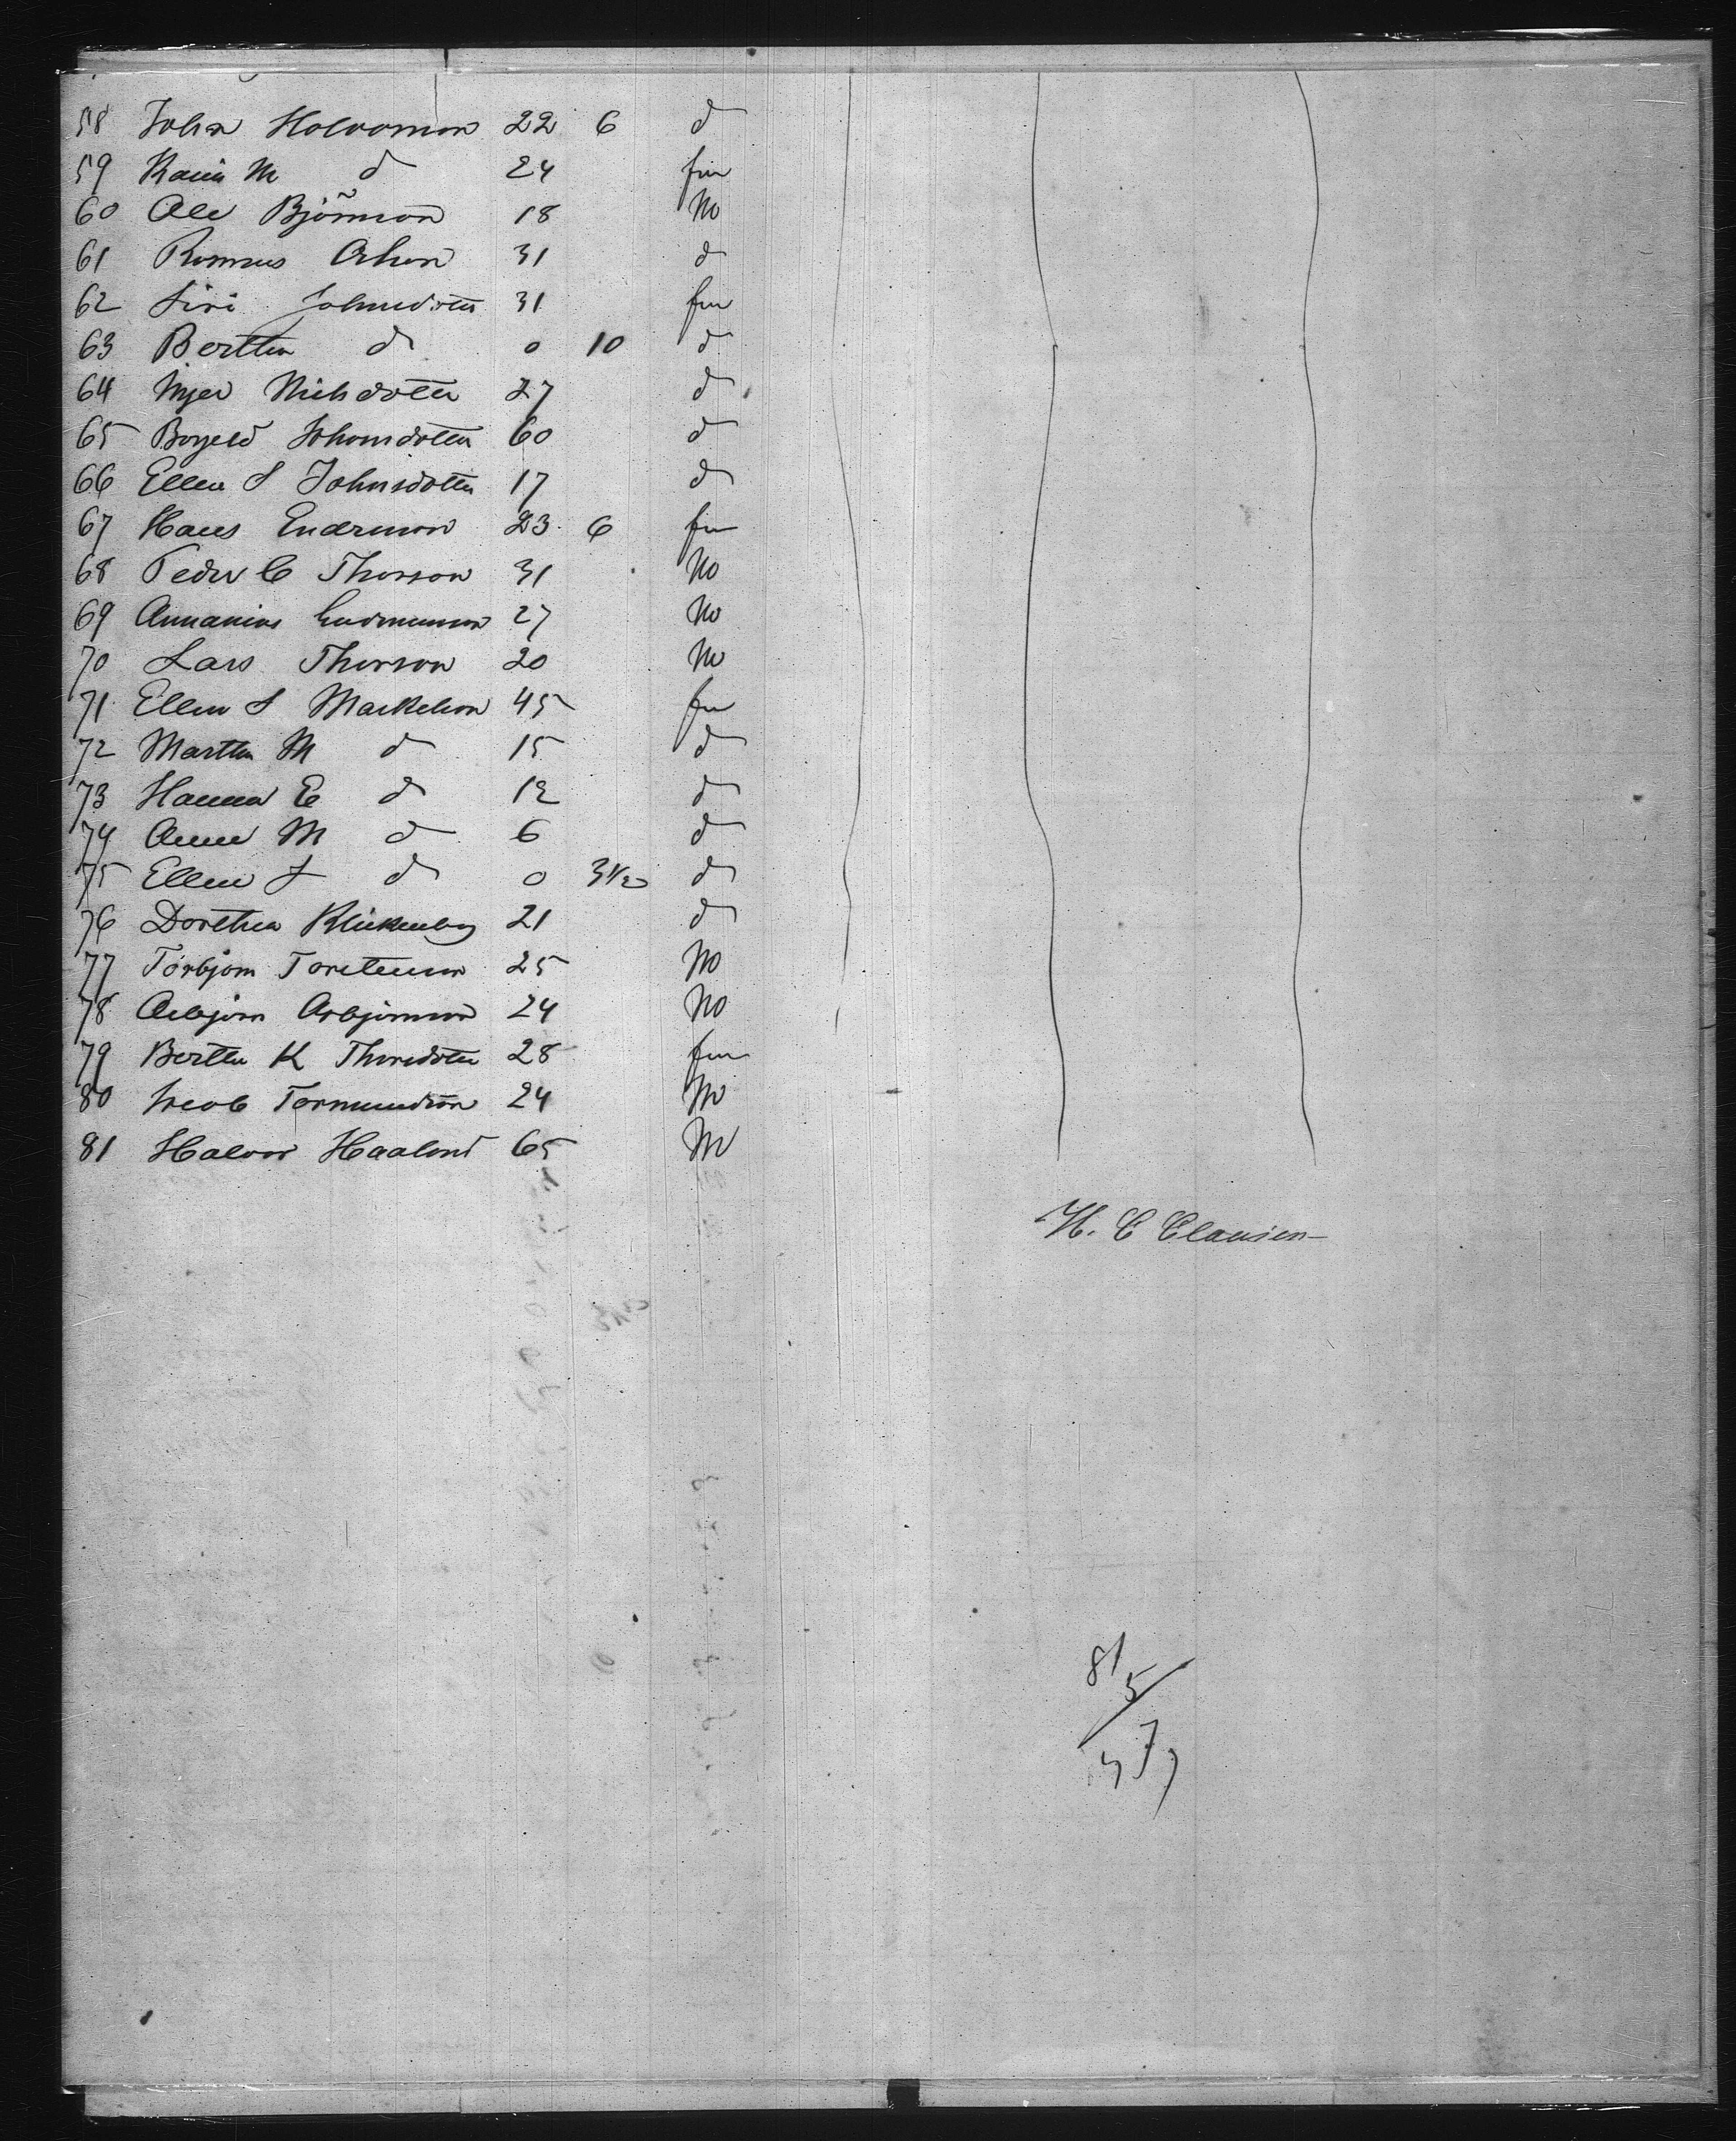 58 John Halvorson 22 6 d
59 Karin M d 24 fm
60 Ole Björnson 18 M
61 Rasmus Olson 31 d
62 Siri Johnsdotter 31 fm
63 Bertha d 0 10 d
64 Inger Nilsdotter 27 d
65 60 d
66 Ellen S Johnsdotter 17 d
67 Hans Enderson 23 6 fm
68 Peder C Thorson 31 M
69 Annanias Gudmunson 27 M
70 Lars Thorson 20 M
71 Ellen S 45 fm
72 Martha M d 15 d
73 Hanna E d 12 d
74 Anne M d 6 d
75 Ellen S d 0 3 1/2 d
76 Dorthea 21 d
77 Torbjorn Torstenson 25 M
78 Asbjorn Asbjornson 24 M
79 Bertha K Thorsdotter 28 fm
80 Jacob Tormundson 24 M
81 Halvor Haaland 65 M
H. C Clausen
81
5